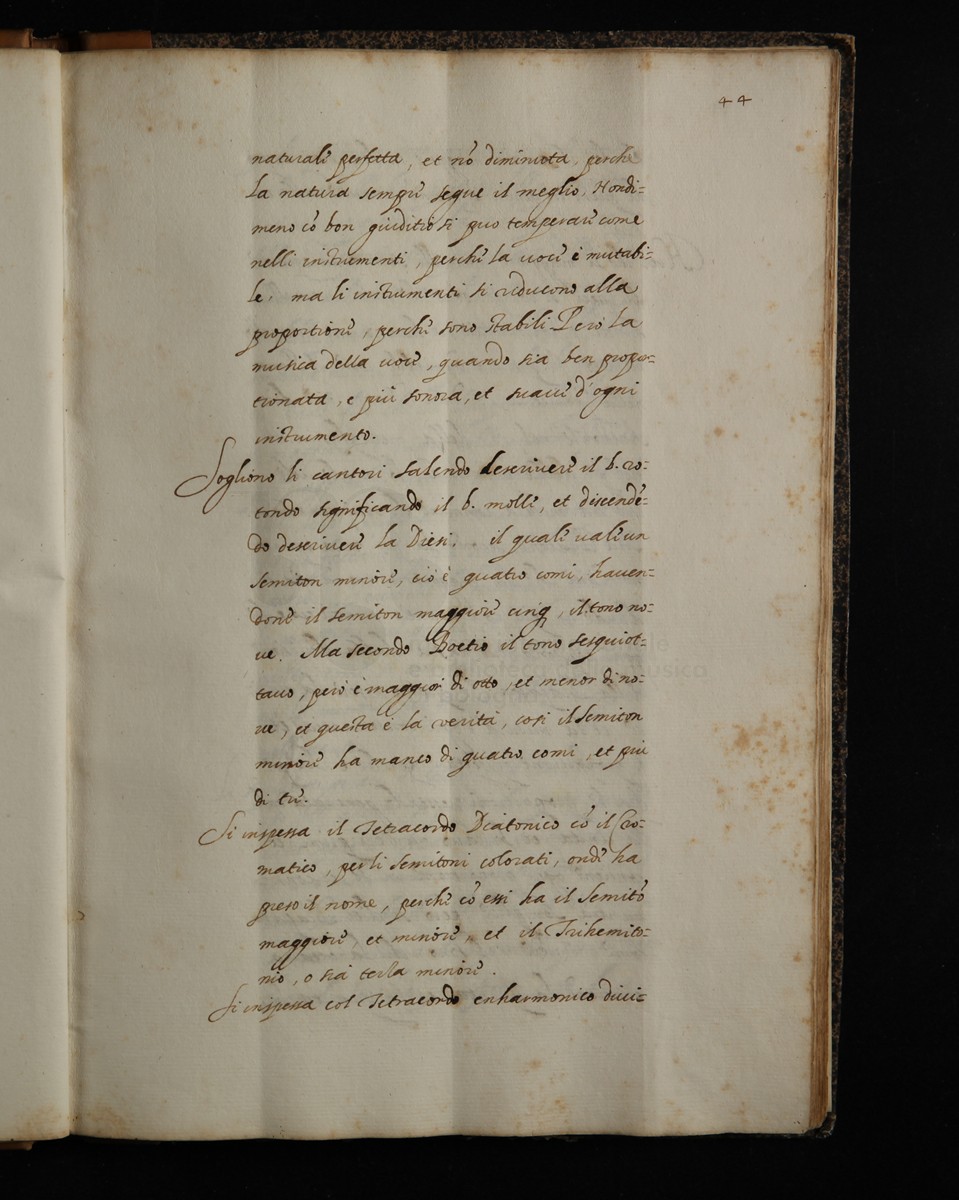 44
naturale perfetta, et nõ diminuta, perche
la natura sempre segue il meglio, Nondi=
meno cõ bon giuditio si puo temperare come
nelli instrumenti, perche la voce è mutabi=
le, ma li instrumenti si riducono alla
proportione, perche sono stabili. Però la
musica della voce, quando sia ben propor=
tionata, e più sonora, et suave d'ogni
instrumento.
Sogliono li cantori salendo descrivere il b. ro=
tondo significando il b. molle, et discendẽ=
do descrivere la Diesi, il quale vale un
semiton minore, ciò è quatro comi, haven=
done il semiton maggiore cinq, il tono no=
ve. Ma secondo Boetio il tono sesquiot=
tavo, però è maggior di otto, et menor di no=
ve, et questa è la verità, cosi il semiton
minore ha manco di quatro comi, et più
di tre.
Si inspessa il Tetracordo Diatonico cõ il Cro=
matico, per li semitoni colorati, onde ha
preso il nome, perche cõ essi ha il semitõ
maggiore, et minore, et il Trihemito=
nio, o sia terza minore.
Si inspessa col Tetracordo enharmonico divi=